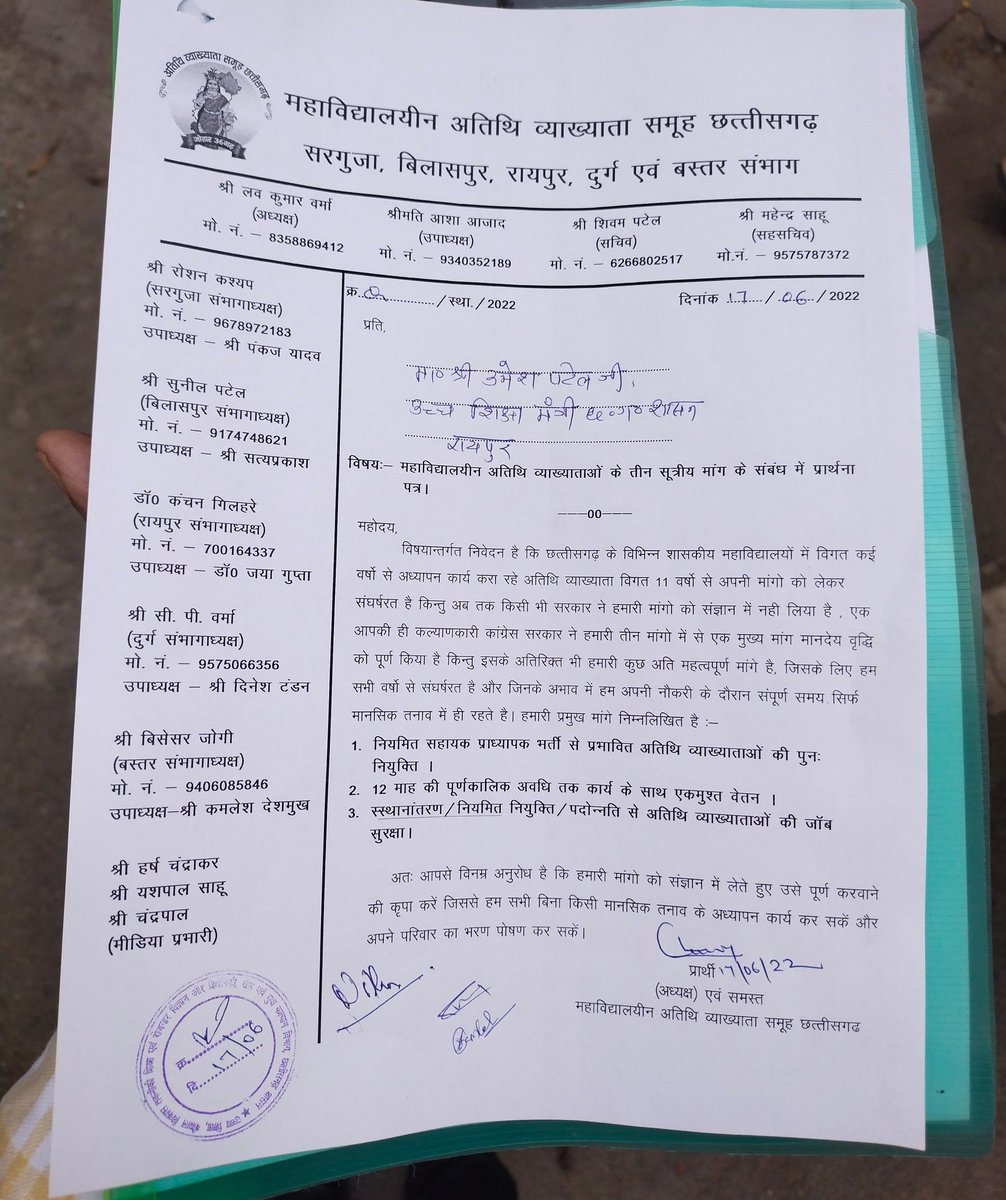 अतिथि व्याख्याता समूह छत्तीसगढ़
महाविद्यालयीन अतिथि व्याख्याता समूह छत्तीसगढ़
सरगुजा, बिलासपुर, रायपुर, दुर्ग एवं बस्तर संभाग
श्री लव कुमार वर्मा
(अध्यक्ष)
मो. नं. – 8358869412
श्रीमति आशा आजाद
(उपाध्यक्ष)
मो. नं. – 9340352189
श्री शिवम पटेल
(सचिव)
मो. नं. – 6266802517
श्री महेन्द्र साहू
(सहसचिव)
मो.नं. – 9575787372
श्री रोशन कश्यप
(सरगुजा संभागाध्यक्ष)
मो. नं. – 9678972183
उपाध्यक्ष – श्री पंकज यादव
श्री सुनील पटेल
(बिलासपुर संभागाध्यक्ष)
मो. नं. – 9174748621
उपाध्यक्ष – श्री सत्यप्रकाश
डॉ0 कंचन गिलहरे
(रायपुर संभागाध्यक्ष)
मो. नं. – 700164337
उपाध्यक्ष – डॉ0 जया गुप्ता
श्री सी. पी. वर्मा
(दुर्ग संभागाध्यक्ष)
मो. नं. – 9575066356
उपाध्यक्ष – श्री दिनेश टंडन
श्री बिसेसर जोगी
(बस्तर संभागाध्यक्ष)
मो. नं. – 9406085846
उपाध्यक्ष–श्री कमलेश देशमुख
श्री हर्ष चंद्राकर
श्री यशपाल साहू
श्री चंद्रपाल
(मीडिया प्रभारी)
क्र. ............... /स्था./2022
दिनांक 17 / 06 / 2022
प्रति,
मा० श्री उमेश पटेल जी,
उच्च शिक्षा मंत्री छ०ग० शासन
रायपुर
विषयः– महाविद्यालयीन अतिथि व्याख्याताओं के तीन सूत्रीय मांग के संबंध में प्रार्थना
पत्र।
–––00–––
महोदय,
विषयान्तर्गत निवेदन है कि छत्तीसगढ़ के विभिन्न शासकीय महाविद्यालयों में विगत कई
वर्षो से अध्यापन कार्य करा रहे अतिथि व्याख्याता विगत 11 वर्षो से अपनी मांगो को लेकर
संघर्षरत है किन्तु अब तक किसी भी सरकार ने हमारी मांगो को संज्ञान में नही लिया है , एक
आपकी ही कल्याणकारी कांग्रेस सरकार ने हमारी तीन मांगो में से एक मुख्य मांग मानदेय वृद्धि
को पूर्ण किया है किन्तु इसके अतिरिक्त भी हमारी कुछ अति महत्वपूर्ण मांगे है, जिसके लिए हम
सभी वर्षो से संघर्षरत है और जिनके अभाव में हम अपनी नौकरी के दौरान संपूर्ण समय सिर्फ
मानसिक तनाव में ही रहते है। हमारी प्रमुख मांगे निम्नलिखित है :–
1. नियमित सहायक प्राध्यापक भर्ती से प्रभावित अतिथि व्याख्याताओं की पुनः
नियुक्ति ।
2. 12 माह की पूर्णकालिक अवधि तक कार्य के साथ एकमुश्त वेतन ।
3. स्स्थानांतरण/नियमित नियुक्ति/पदोन्नति से अतिथि व्याख्याताओं की जॉब
सुरक्षा।
अतः आपसे विनम्र अनुरोध है कि हमारी मांगो को संज्ञान में लेते हुए उसे पूर्ण करवाने
की कृपा करें जिससे हम सभी बिना किसी मानसिक तनाव के अध्यापन कार्य कर सकें और
अपने परिवार का भरण पोषण कर सकें।
प्रार्थी 17/06/22
(अध्यक्ष) एवं समस्त
महाविद्यालयीन अतिथि व्याख्याता समूह छत्तीसगढ
क्र.
17/06